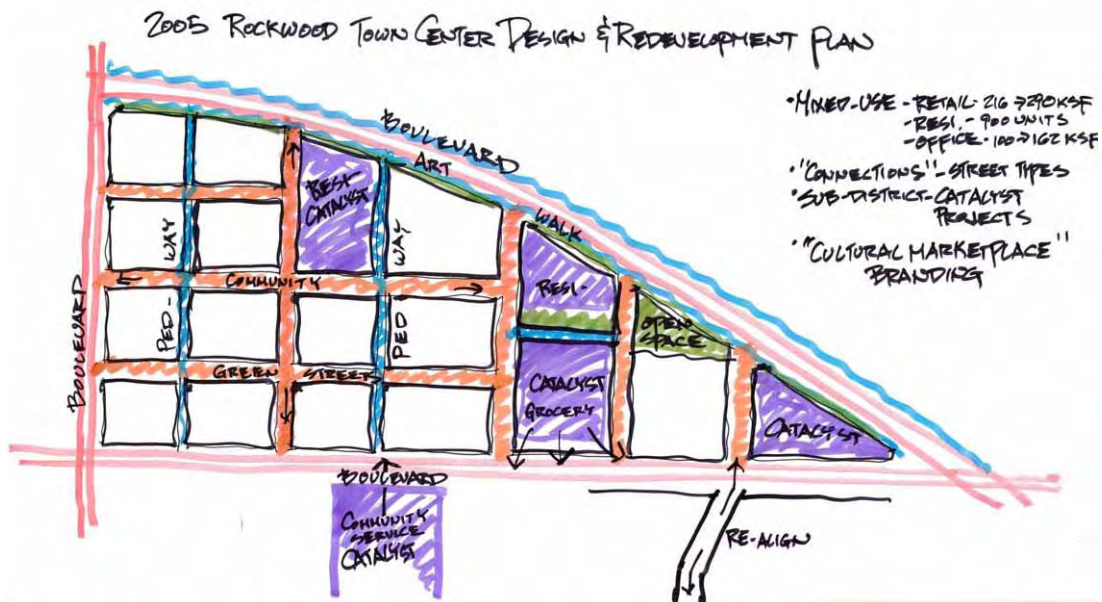 2005 ROCKWOOD TOWN CENTER DESIGN & REDEVELOPMENT PLAN
• MIXED-USE - RETAIL - 216 → 290 KSF
- RESI. - 900 UNITS
- OFFICE - 100 → 162 KSF
• "CONNECTIONS" - STREET TYPES
• SUB-DISTRICT - CATALYST
PROJECTS
• "CULTURAL MARKETPLACE"
BRANDING
BOULEVARD
ART
WALK
RESI-
CATALYST
WAY
PED-
WAY
PED
COMMUNITY
GREEN STREET
BOULEVARD
RESI-
OPEN
SPACE
CATALYST
GROCERY
CATALYST
BOULEVARD
COMMUNITY
SERVICE
CATALYST
RE-ALIGN